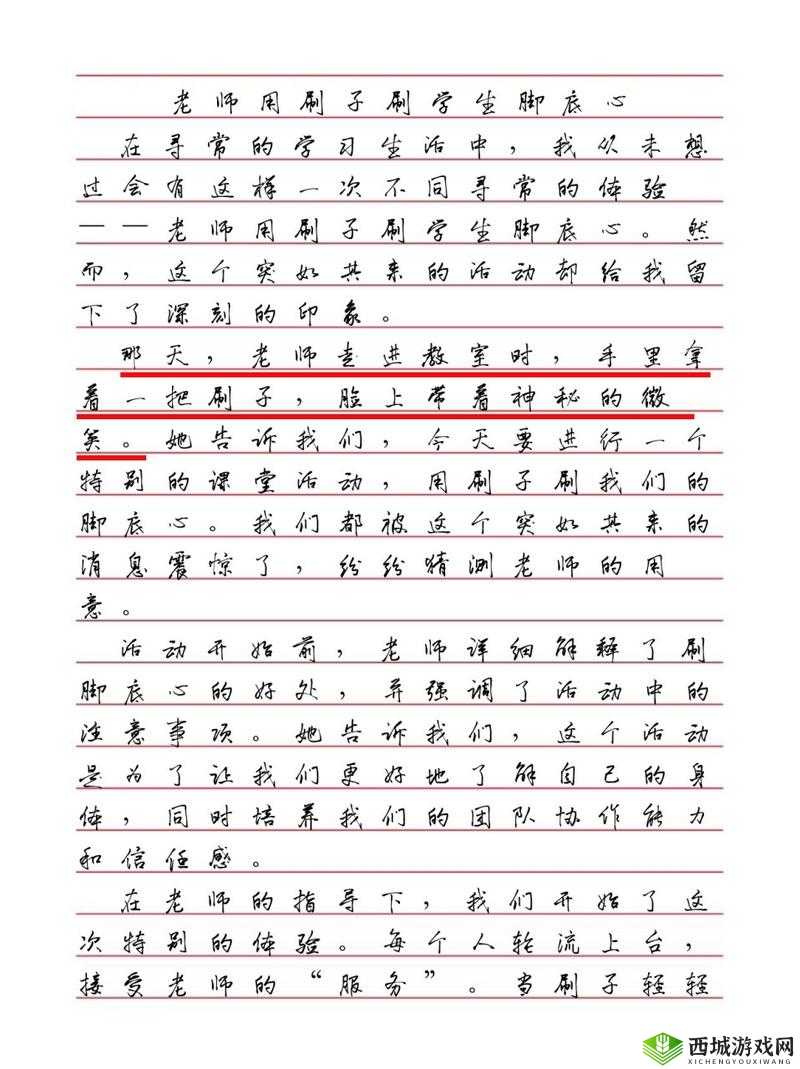 老师用刷子刷学生脚底心
在寻常的学习生活中，我从未想
过会有这样一次不同寻常的体验
——老师用刷子刷学生脚底心。然
而，这个突如其来的活动却给我留
下了深刻的印象。
那天，老师走进教室时，手里拿
着一把刷子，脸上带着神秘的微
笑。她告诉我们，今天要进行一个
特别的课堂活动，用刷子刷我们的
脚底心。我们都被这个突如其来的
消息震惊了，纷纷猜测老师的用
意。
活动开始前，老师详细解释了刷
脚底心的好处，并强调了活动中的
注意事项。她告诉我们，这个活动
是为了让我们更好地了解自己的身
体，同时培养我们的团队协作能力
和信任感。
在老师的指导下，我们开始了这
次特别的体验。每个人轮流上台，
接受老师的“服务”。当刷子轻轻
西城游戏网
XICHENGYOUXIWANG